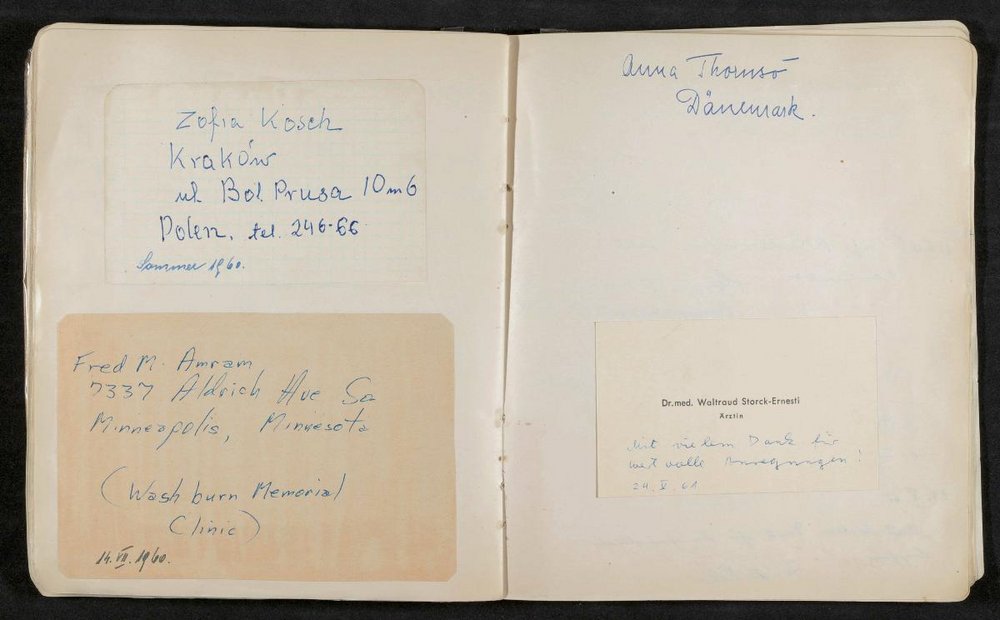 Zofia Kosch
Kraków
ul. Bol. Prusa 10 m 6
Polen, tel. 246-66
Sommer 1960.
Fred M. Amram
7337 Aldrich Ave So
Minneapolis, Minnesota
(Washburn Memorial
Clinic)
14. VII. 1960.
Anna Thomsø
Dänemark.
Dr. med. Waltraud Storck-Ernesti
Ärztin
Mit vielem Dank für
wertvolle Anregungen!
24. X. 61